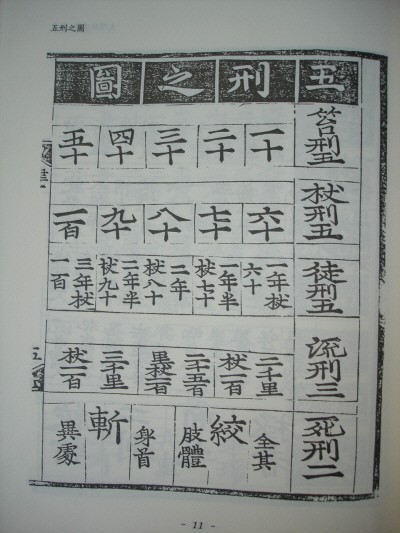 五刑之圖
五刑之圖
笞刑五 一十 二十 三十 四十 五十
杖刑五 六十 七十 八十 九十 一百
徒刑五 一年杖六十 一年半杖七十 二年杖八十 二年半杖九十 三年杖一百
流刑三 二千里杖一百 二千五百里杖一百 三千里杖一百
死刑二 絞 全其肢體 斬 身首異處
- 11 -